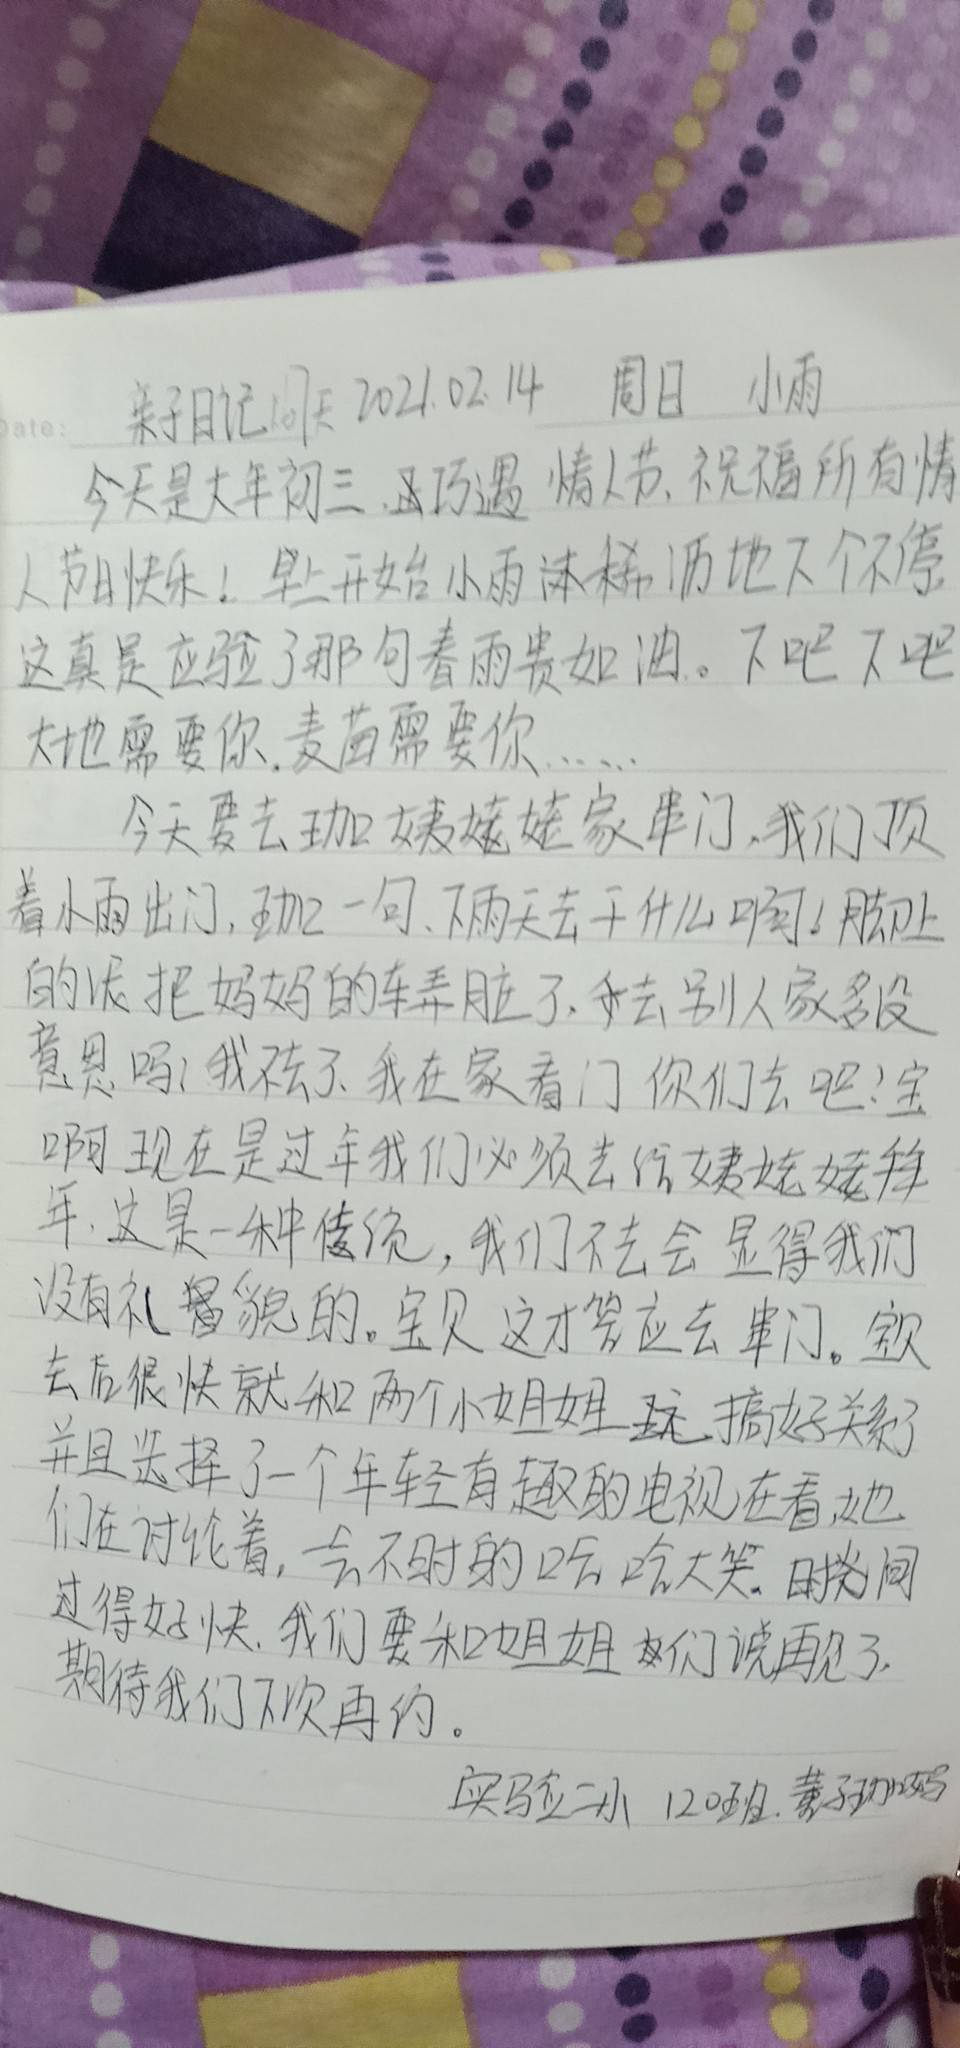 Date:
亲子日记107天 2021.02.14 周日 小雨
今天是大年初三、正巧遇情人节、祝福所有情
人节日快乐！早上开始小雨淅稀沥地下个不停
这真是应验了那句春雨贵如油。下吧下吧
大地需要你、麦苗需要你……
今天要去珈姨姥姥家串门、我们顶
着小雨出门，珈一句、下雨天去干什么啊！脚上
的泥把妈妈的车弄脏了、去别人家多没
意思吗！我不去了、我在家看门你们去吧！宝
啊现在是过年我们必须去给姨姥姥拜
年、这是一种传统，我们不去会显得我们
没有礼貌的。宝贝这才答应去串门。宝贝
去后很快就和两个小姐姐玩搞好关系了
并且选择了一个年轻有趣的电视在看她
们在讨论着，会不时的哈哈大笑、时间
过得好快、我们要和姐姐们说再见了、
期待我们下次再约。
实验二小 120班、黄子珈妈妈